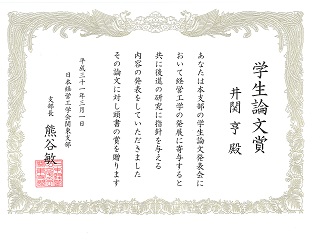 学生論文賞
井関亨殿
あなたは本支部の学生論文発表会に
おいて経営工学の発展に寄与すると
共に後進の研究に指針を与える
内容の発表をしていただきました
その論文に対し頭書の賞を贈ります
平成三十一年三月一日
日本経営工学会関東支部
支部長 熊谷敏